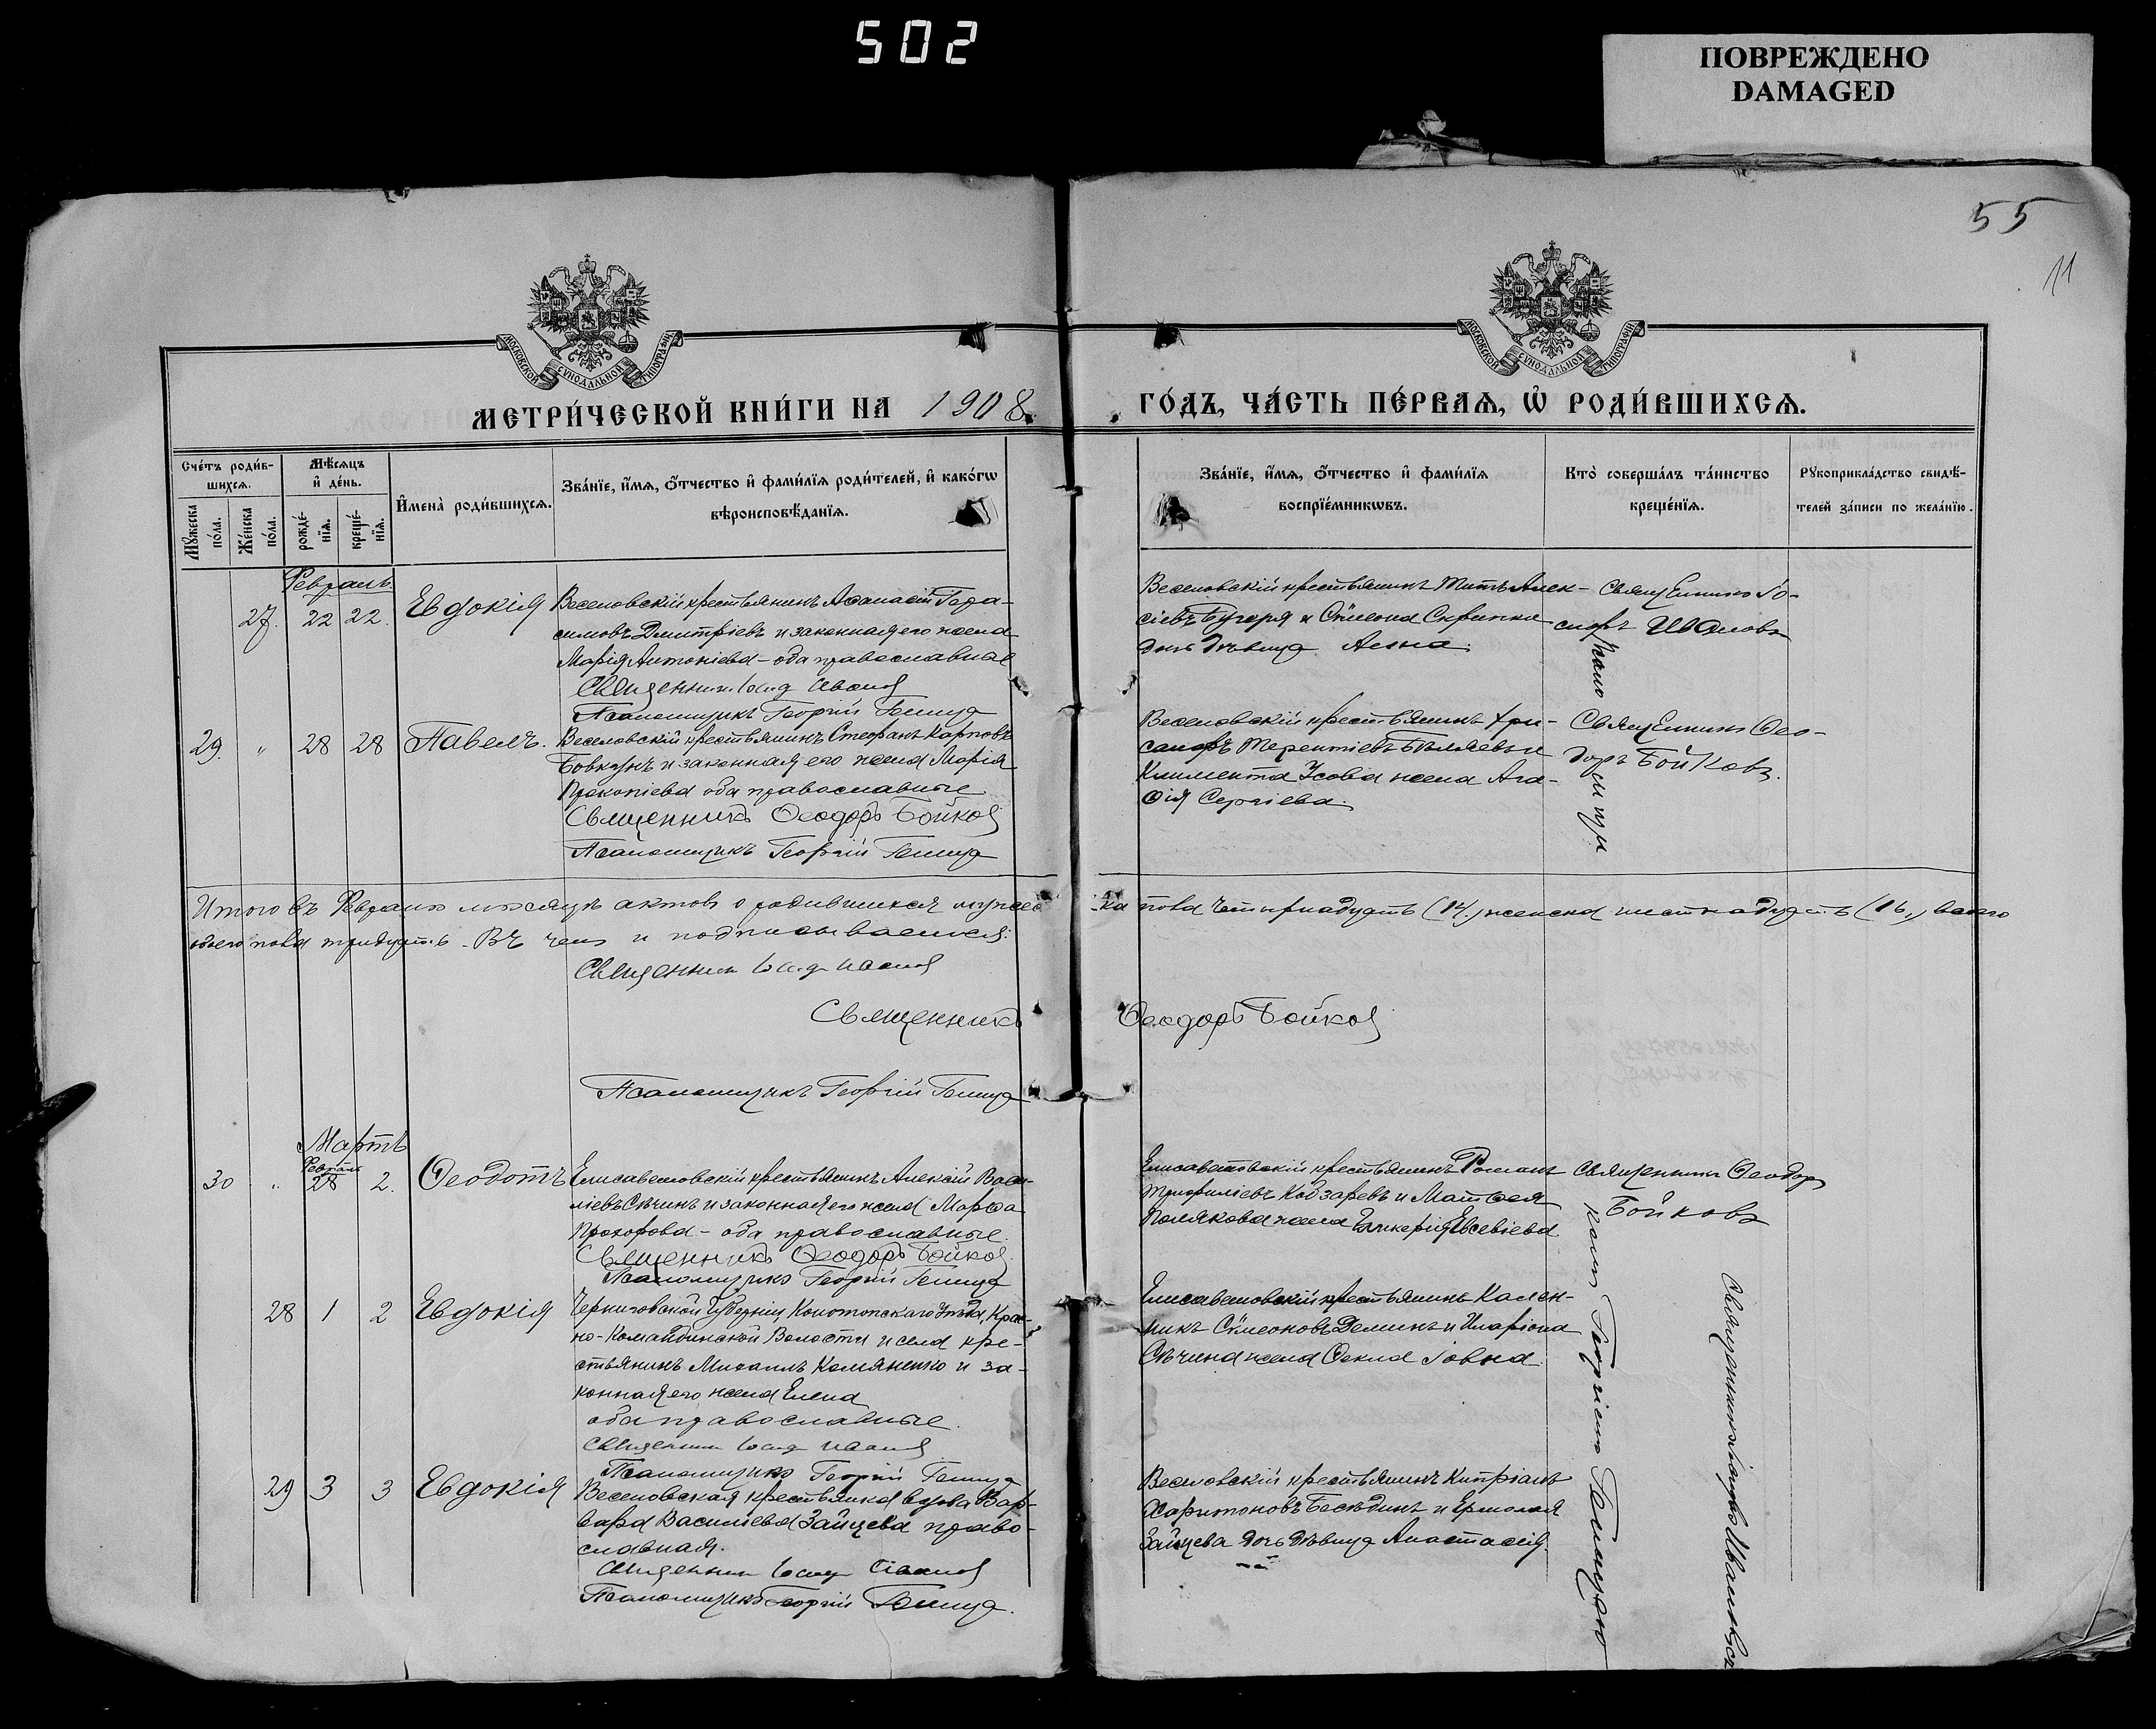 502
ПОВРЕЖДЕНО
DAMAGED
55
11
МОСКОВСКОЙ СѴНОДАЛЬНОЙ ТИПОГРАФІИ
МОСКОВСКОЙ СѴНОДАЛЬНОЙ ТИПОГРАФІИ
МЕТРИ́ЧЕСКОЙ КНИ́ГИ НА 1908
ГО́ДЪ, ЧА́СТЬ ПЕ́РВАЯ, Ѡ РОДИ́ВШИХСЯ.
Сче́тъ роди́в-
шихся.
Мѣ́сяцъ
и де́нь.
Мꙋ́жеска
по́ла.
Же́нска
по́ла.
рожде́-
нїя.
креще́-
нїя.
И҆мена̀ роди́вшихся.
Зва́нїе, и҆́мя, ѻ҆́тчество и҆ фами́лїя роди́телей, и҆ како́гѡ
вѣроисповѣ́данїя.
Зва́нїе, и҆́мя, ѻ҆́тчество и҆ фами́лїя
воспрїе́мникѡвъ.
Кто̀ соверша́лъ та́инство
креще́нїя.
Рꙋкоприкла́дство свидѣ́-
телей за́писи по жела́нїю.
Февраль
27. 22 22. Евдокія
Веселовскій крестьянинъ Аѳанасій Гера-
симовъ Дмитріевъ и законная его жена
Марія Антоніева – оба православные
Священникъ Іоаѳ Иванов
Псаломщикъ Георгій
Веселовскій крестьянинъ Титъ Алек-
сіевъ Бугеря и Сѷмеона Скрипки
дочь дѣвица Анна.
Священникъ Іо-
Ивановъ
29. " 28 28 Павелъ.
Веселовскій крестьянинъ Стефанъ Карповъ
Бовкунъ и законная его жена Марія
Прокопіева оба православные
Священникъ Ѳеодоръ Бойков
Псаломщикъ Георгій
Веселовскій крестьянинъ Хри-
санфъ Терентіевъ Бѣляевъ и
Климента Усова жена Ага-
ѳія Сергіева.
Священникъ Ѳео-
доръ Бойковъ.
Итого въ Февралѣ мѣсяцѣ актовъ о родившихся мужес-
ка пола четырнадцать (14.) женска шестнадцать (16.) всего
обоего пола тридцать. Въ чемъ и подписываемся:
Священникъ Иванов
Священникъ
Ѳеодоръ Бойков
Псаломщикъ Георгій
Мартъ
Февраль
30 " 28 2. Ѳеодотъ
Елисаветовскій крестьянинъ Алексій Васи-
ліевъ Сѣчинъ и законная его жена Марѳа
Прохорова – оба православные.
Священникъ Ѳеодоръ Бойков
Псаломщикъ Георгій
Елисаветовскій крестьянинъ Романъ
Трифиліевъ Кобзаревъ и Матѳея
Полякова жена Гликерія Евсевіева
Священникъ Ѳеодор
Бойковъ
28 1 2 Евдокія
Черниговской губерніи, Конотопскаго уѣзда, Крас-
но-Колядинской Волости и села кре-
стьянинъ Михаилъ Коляненко и за-
конная его жена Елена
оба православные.
Священникъ Иванов
Псаломщикъ Георгій
Елисаветовскій крестьянинъ Кален-
никъ Сѷмеоновъ Деминъ и Иларіона
Сѣчина жена Ѳекла Іовна.
29 3 3 Евдокія
Веселовская крестьянка вдова Вар-
вара Василіева Зайцева право-
славная.
Священникъ Иванов
Псаломщикъ Георгій
Веселовскій крестьянинъ Кипріанъ
Харитоновъ Бесѣдинъ и Ермолая
Зайцева дочь дѣвица Анастасія.